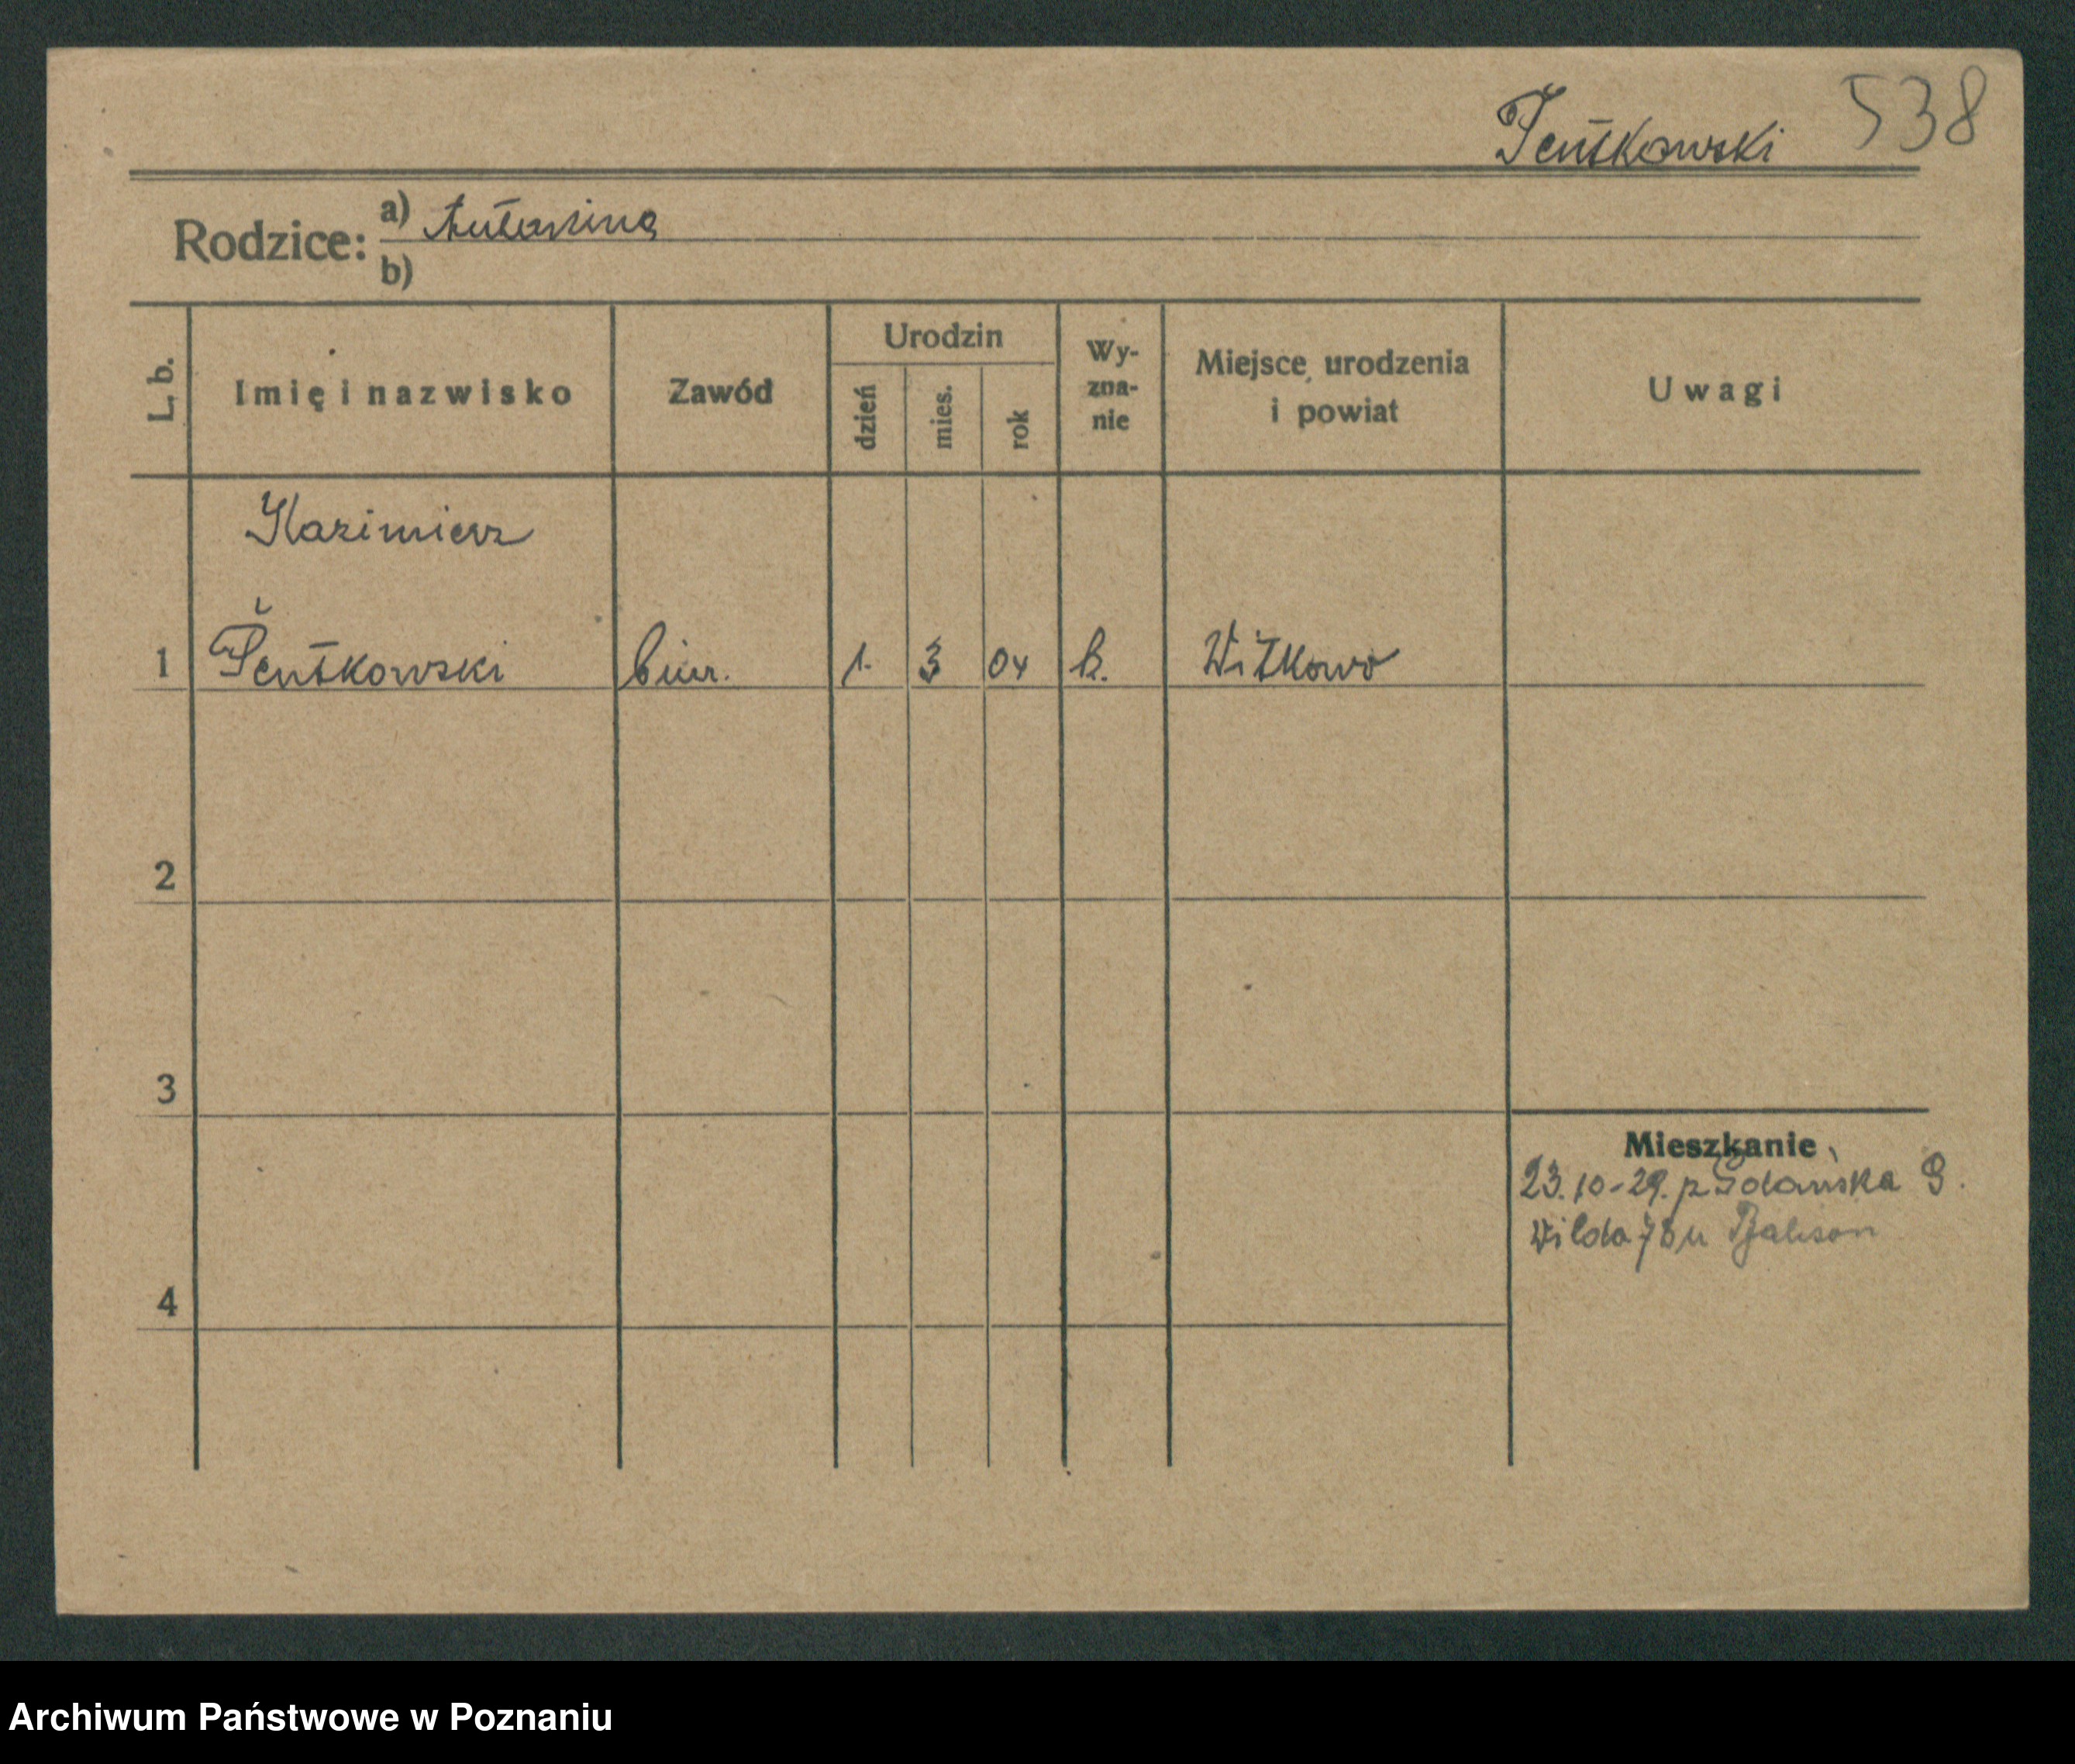 Pentkowski 538
Rodzice: a) Antonina
b)
L. b. Imię i nazwisko Zawód Urodzin dzień mies. rok Wy-zna-nie Miejsce urodzenia i powiat Uwagi
Kazimierz
1 Pentkowski biur. 1. 3 04 k. Witkowo
2
3
Mieszkanie
23.10-29. p Gdańska 3.
Wilda 78 u
4
Archiwum Państwowe w Poznaniu